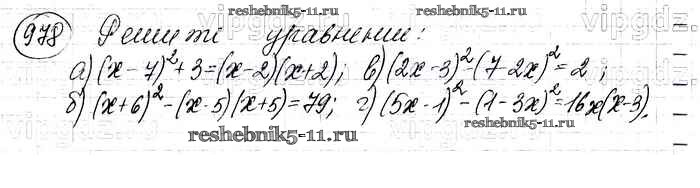 978 Решите уравнение:
а) (x-7)²+3=(x-2)(x+2); в) (2x-3)²-(7-2x)²=2;
б) (x+6)²-(x-5)(x+5)=79; г) (5x-1)²-(1-3x)²=16x(x-3).
reshebnik5-11.ru
reshebnik5-11.ru
reshebnik5-11.ru
reshebnik5-11.ru